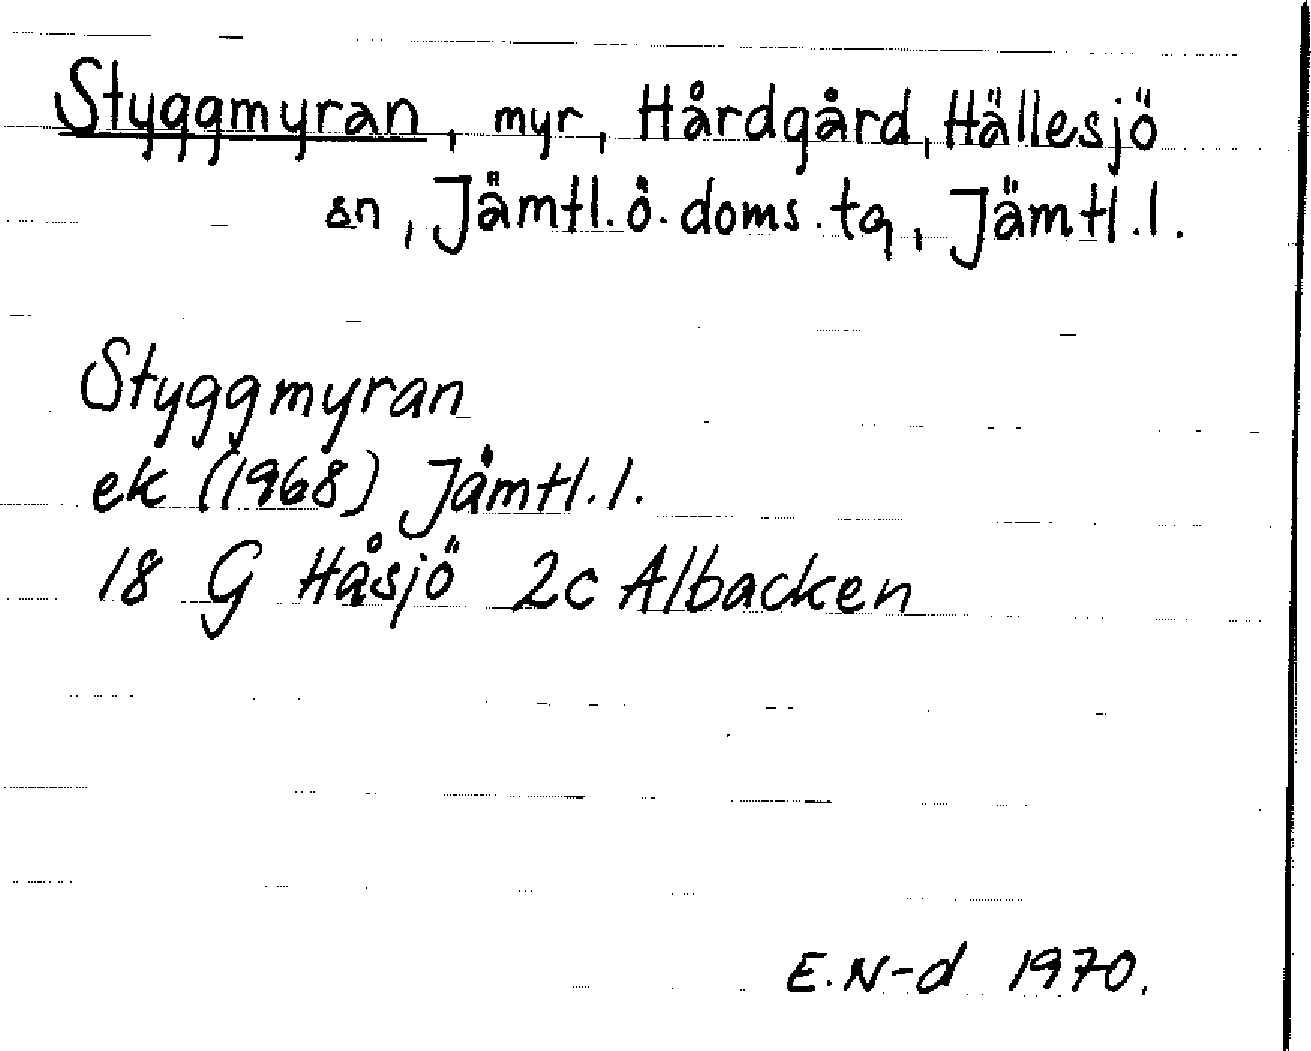 Styggmyran, myr, Hårdgård, Hällesjö
sn, Jämtl. ö. doms. tg, Jämtl. l.
Styggmyran
ek (1968) Jämtl. l.
18 G Håsjö 2c Albacken
E. N-d 1970.